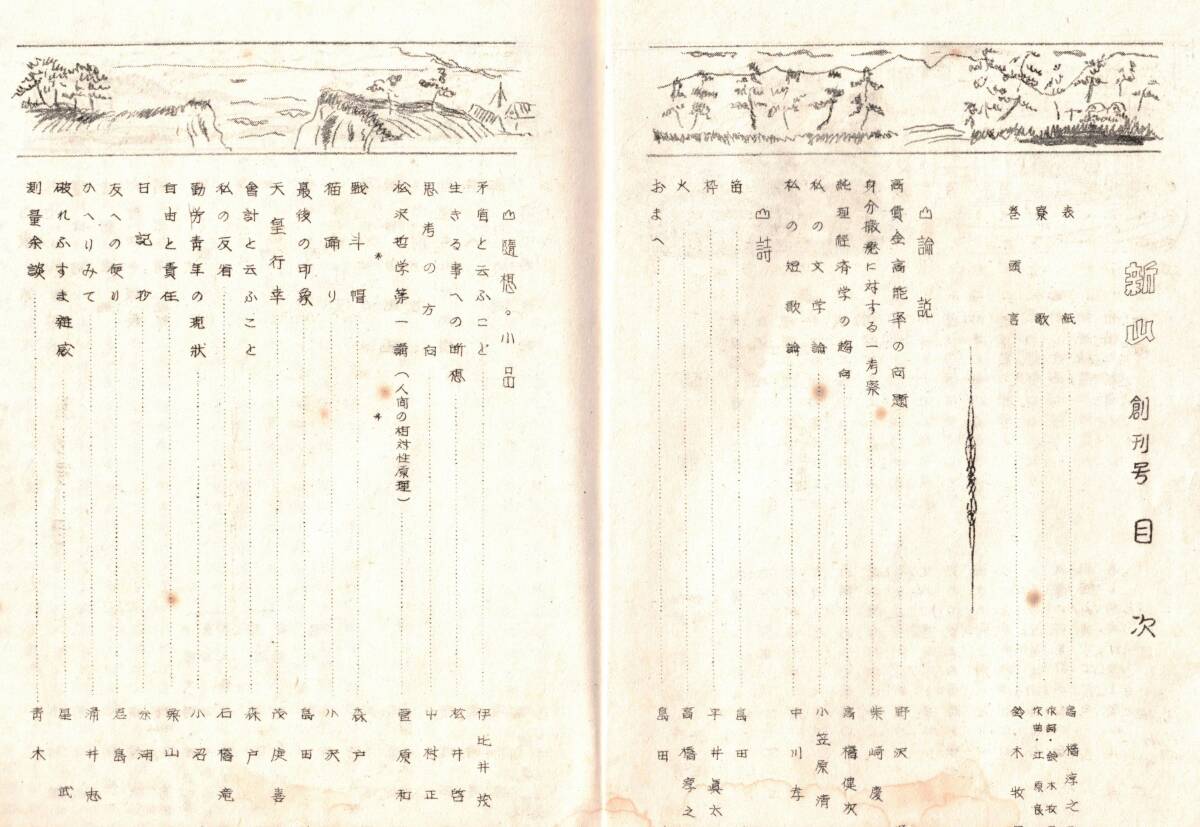 新山 創刊号 目次
表紙 高橋淳之
寮歌 作詞・鈴木牧
作曲・江原良
巻頭言 鈴木牧
山論説
高賃金高能率の向題 野沢
身分撤廃に対する一考察 柴崎慶
純理経済学の趨向 高橋健次
私の文学論 小笠原清
私の短歌論 中川寿
山詩
笛 島田
枠 平井眞太
火 高橋淳之
おまへ 島田
山隨想。小品
矛盾と云ふこと 伊比井茂
生きる事への断想 松井啓
思考の方向 中村正
松沢哲学第一論(人向の相対性原理) 菅原和
戦斗帽 森戸
猫踊り 小沢
最後の印象 島田
天皇行幸 茂庚喜
會計と云ふこと 森戸
私の反省 石橋竜
勤労青年の現狀 小沼
自由と責任 栗山
日記抄
友への便り 島
かへりみて 涌井忠
破れふすま雑感 星武
測量余談 青木